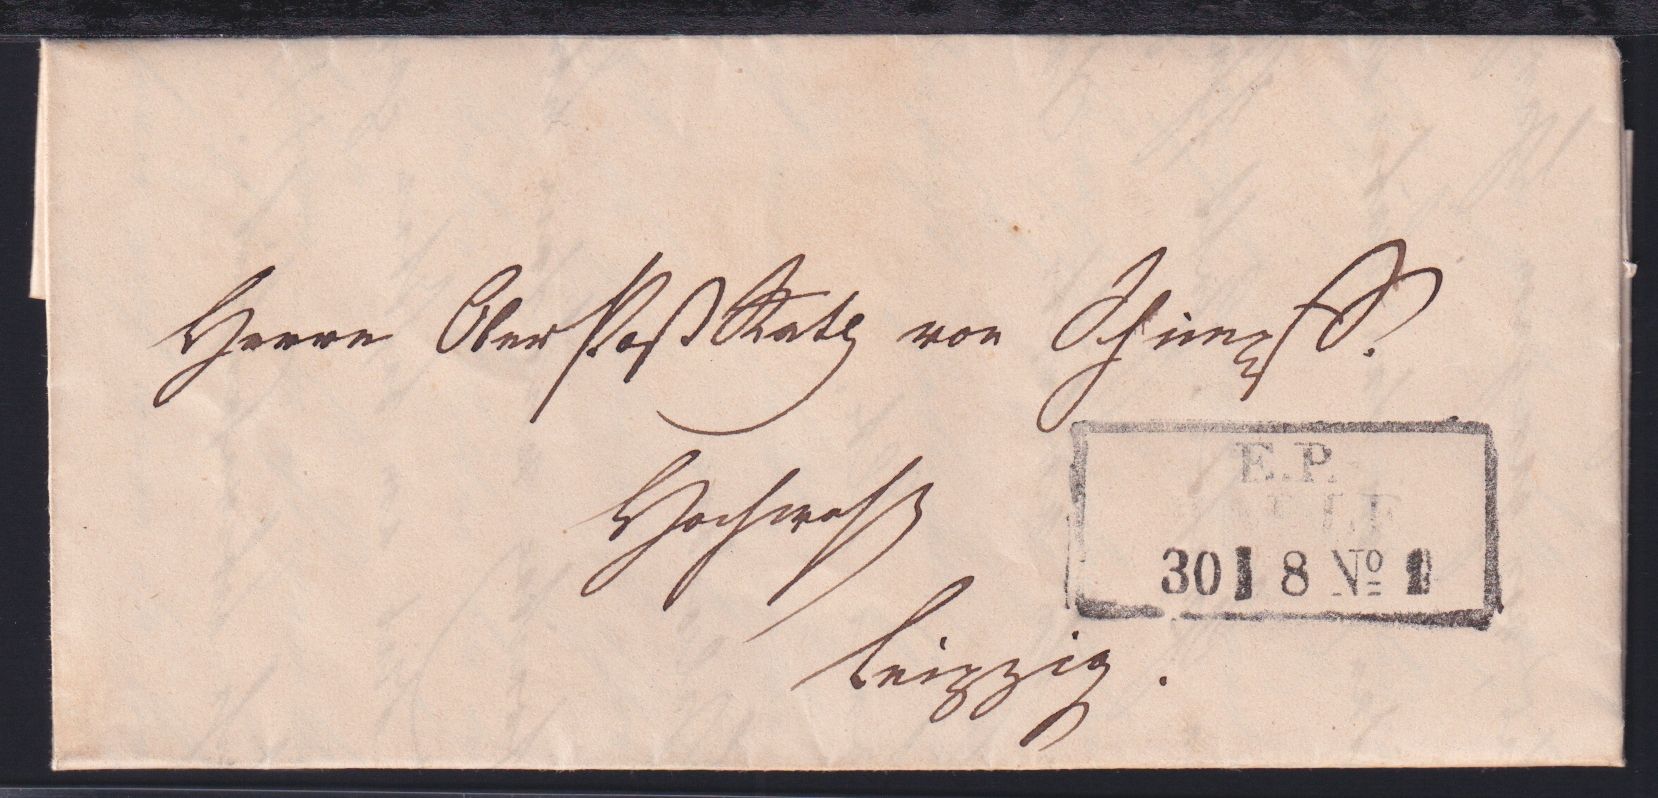 Herrn Ober Post Rath von Schimpff.
Hochwohl
Leipzig.
E.P.
30 8 No 1